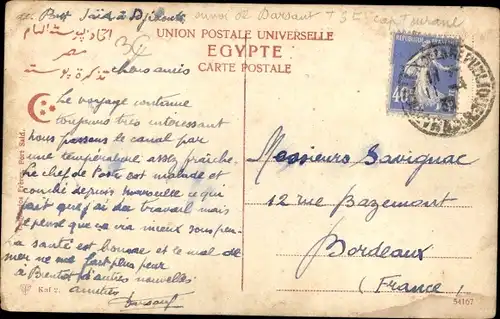 de Port Saïd à Djibouti
envoi de Barsant + 3e cap Durane
UNION POSTALE UNIVERSELLE
EGYPTE
CARTE POSTALE
اتحاد البوستة العام
مصر
تذكرة بوستة
chers amis
Le voyage continue
toujours très intéressant
nous passons le canal par
une température assez fraîche.
Le chef de Poste est malade et
couché depuis Marseille ce qui
fait que j'ai du travail mais
je pense que ça ira mieux sous peu
La santé est bonne et le mal de
mer ne me fait plus peur
à Bientôt d'autres nouvelles
amitiés
Messieurs Savignac
12 rue Bazemont
Bordeaux
(France)
40
Port Said.
Kof 2.
54107